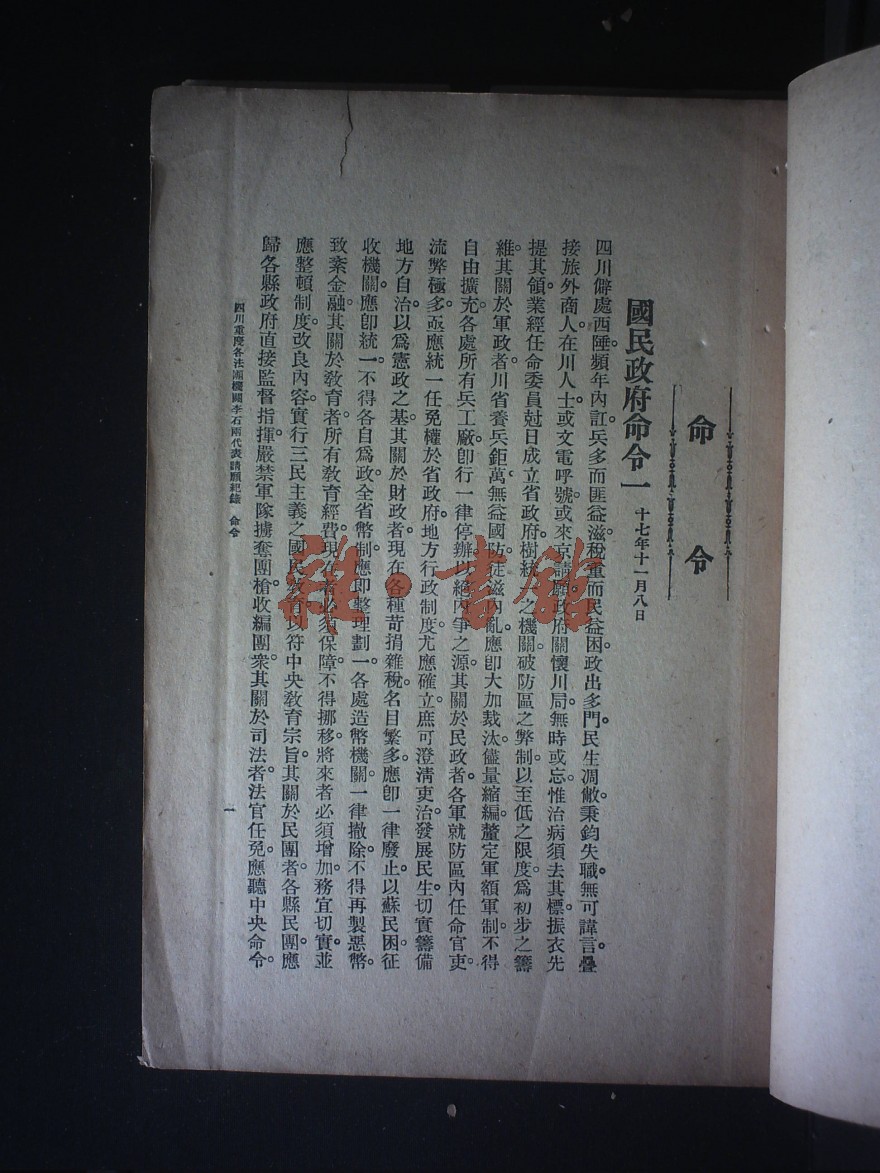 命令
國民政府命令一 十七年十一月八日
四川僻處西陲。頻年內訌。兵多而匪益滋。稅重而民益困。政出多門。民生凋敝。秉鈞失職。無可諱言。疊
接旅外商人。在川人士。或文電呼號。或來京請願。政府關懷川局。無時或忘。惟治病須去其標。振衣先
提其領。業經任命委員。尅日成立省政府。樹統一之機關。破防區之弊制。以至低之限度。爲初步之籌
維。其關於軍政者。川省養兵鉅萬。無益國防。徒滋內亂。應卽大加裁汰。儘量縮編。釐定軍額軍制。不得
自由擴充。各處所有兵工廠。卽行一律停辦。以絕內爭之源。其關於民政者。各軍就防區內任命官吏。
流弊極多。亟應統一任免權於省政府。地方行政制度。尤應確立。庶可澄清吏治。發展民生。切實籌備
地方自治。以爲憲政之基。其關於財政者。現在各種苛捐雜稅。名目繁多。應卽一律廢止。以蘇民困。征
收機關。應卽統一。不得各自爲政。全省幣制。應即整理劃一。各處造幣機關。一律撤除。不得再製惡幣。
致紊金融。其關於教育者。所有教育經費。現在者必須保障。不得挪移。將來者必須增加。務宜切實。並
應整頓制度。改良內容。實行三民主義之國民教育。以符中央教育宗旨。其關於民團者。各縣民團。應
歸各縣政府直接監督指揮。嚴禁軍隊擄奪團槍。收編團衆。其關於司法者。法官任免。應聽中央命令。
四川重慶各法團機關李石兩代表請願紀錄 命令
一
雜·書館